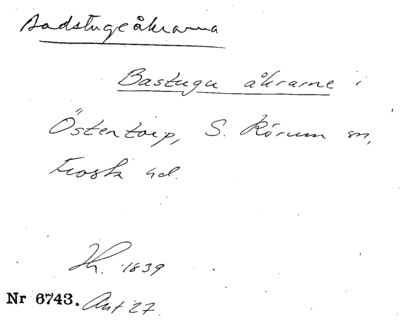 Badstugeåkrarna
Bastugu åkrarne i
Östentorp, S. Rörum sn,
Frosta hd.
1839
Nr 6743. Ant 27.